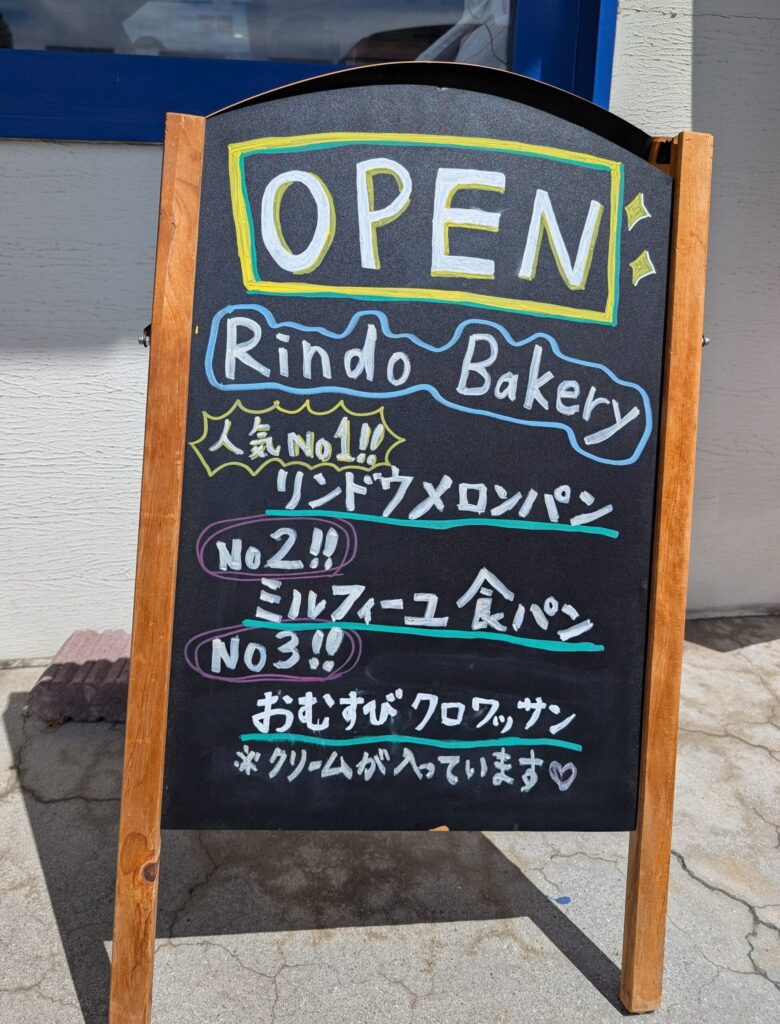 OPEN
Rindo Bakery
人気 No1!!
リンドウメロンパン
No2!!
ミルフィーユ食パン
No3!!
おむすびクロワッサン
※クリームが入っています♡